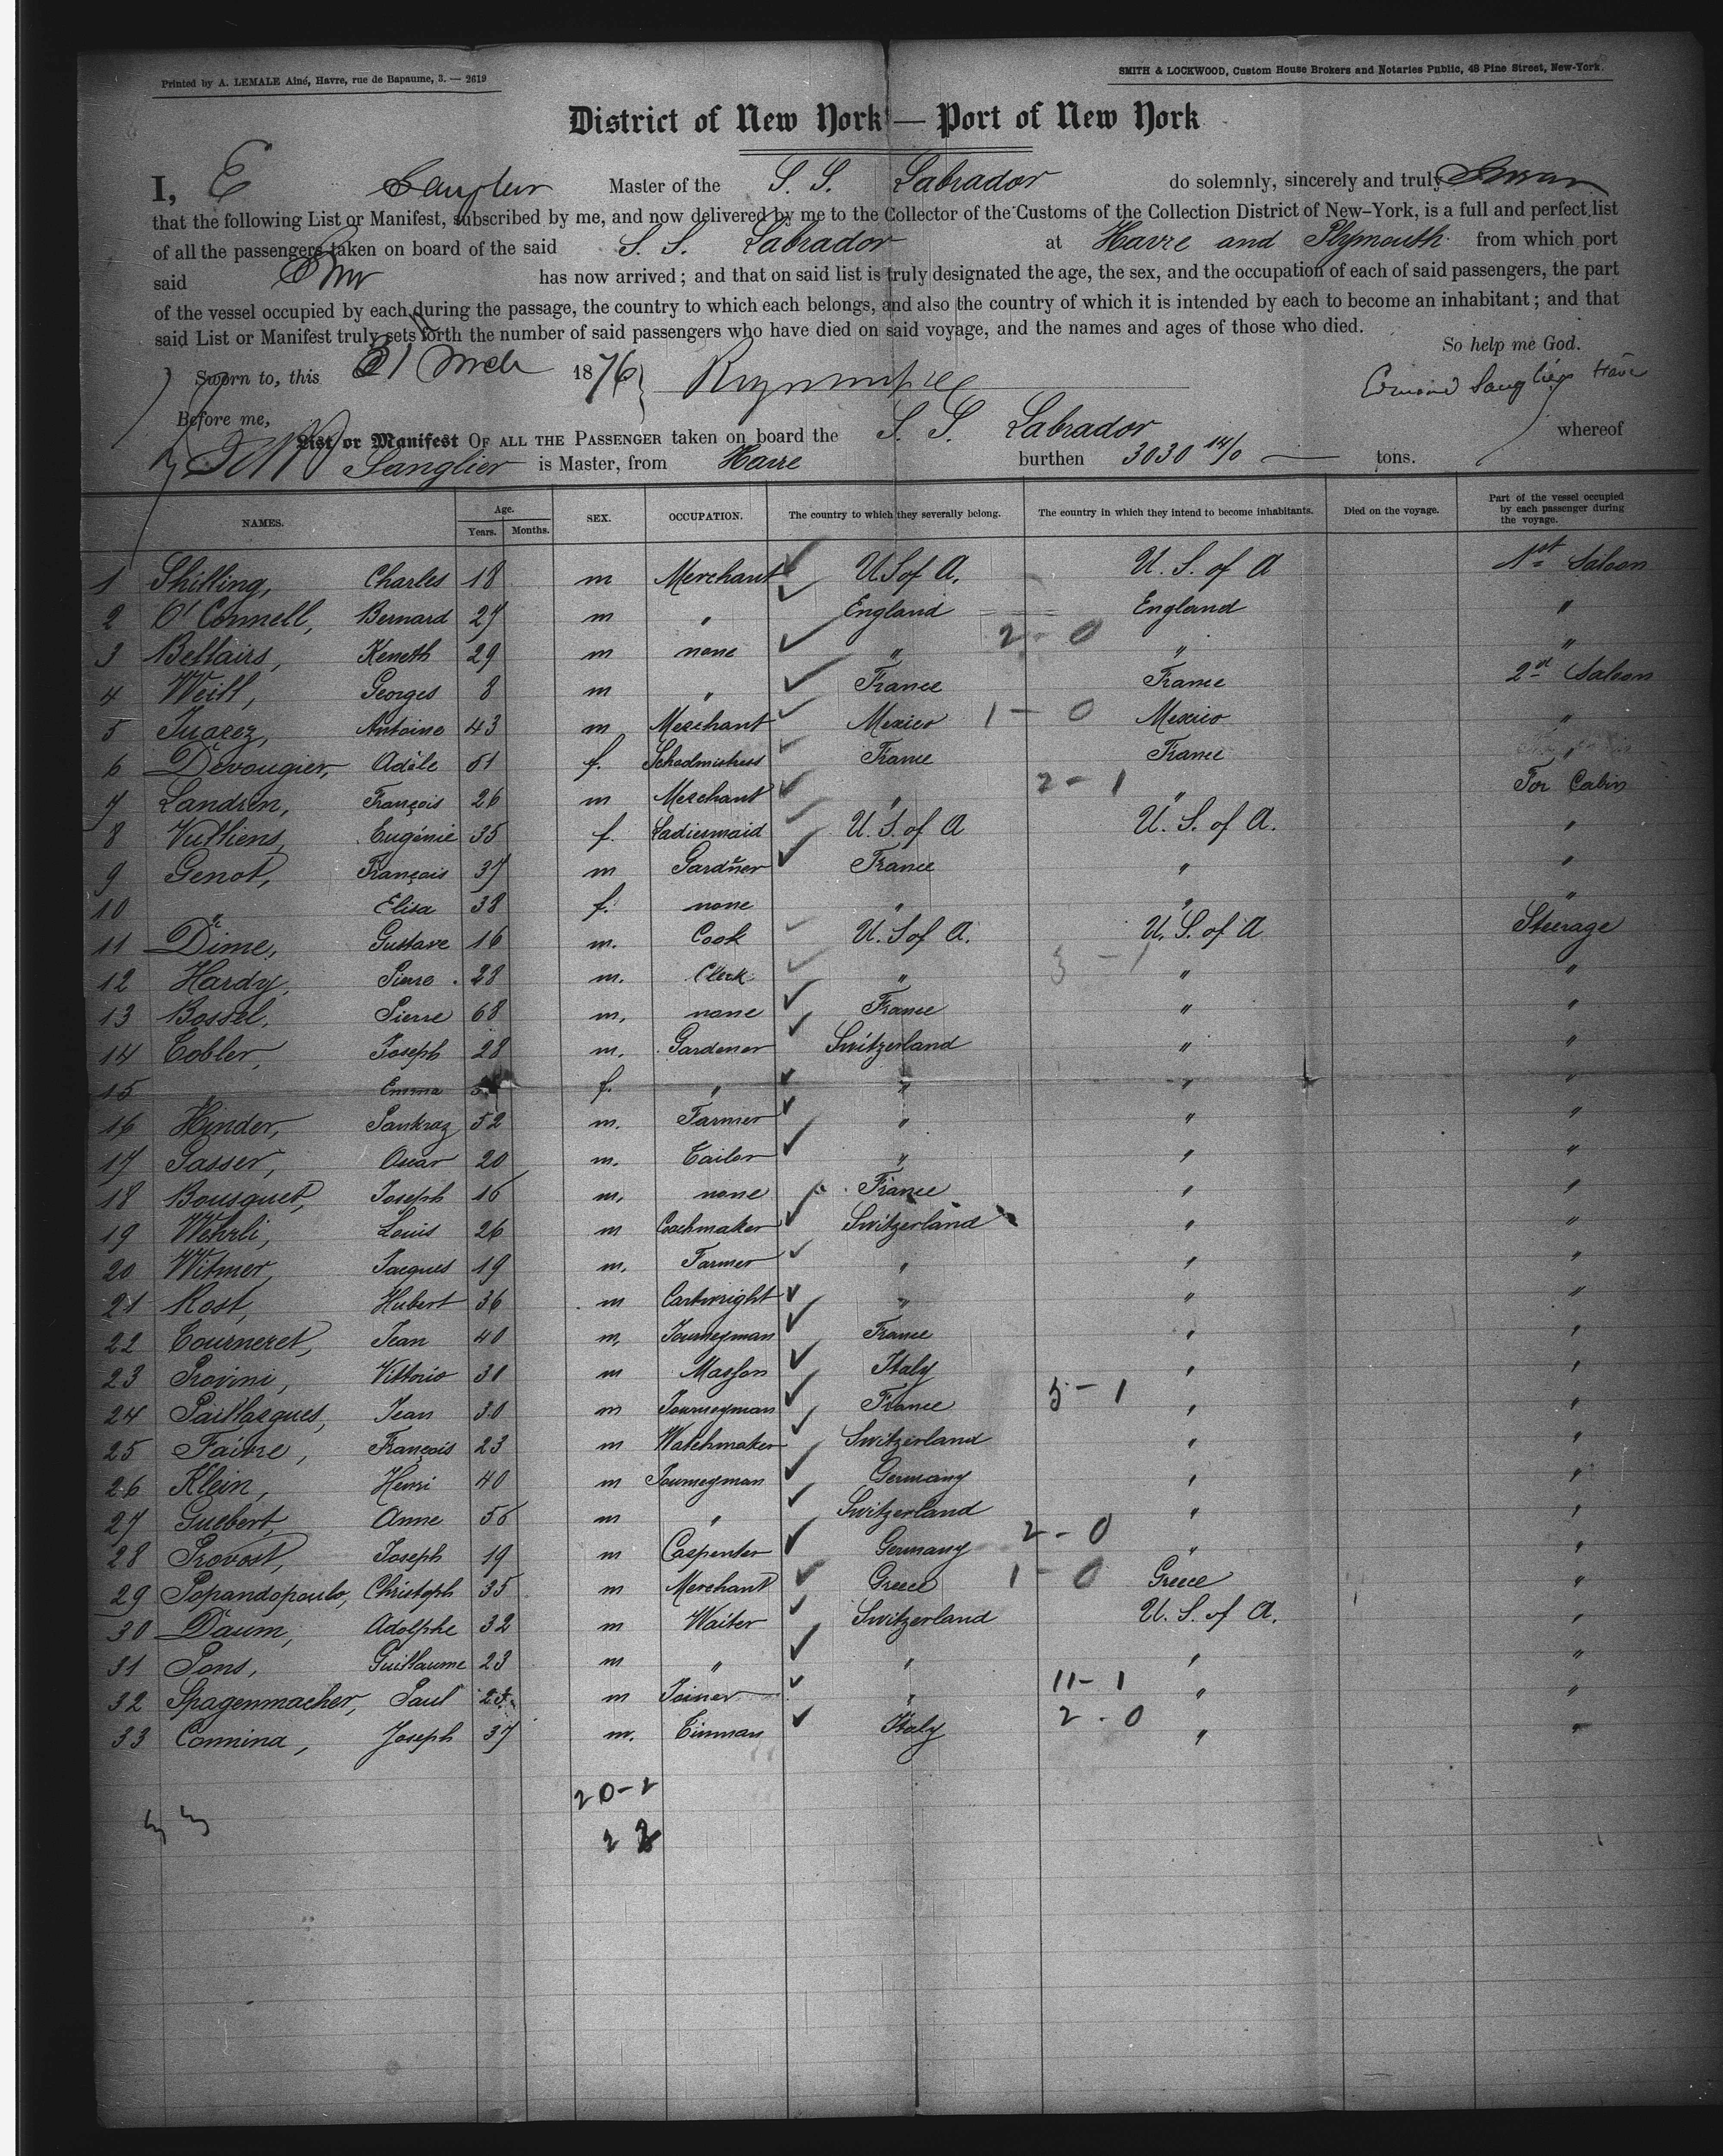 Printed by A. LEMALE Aîné, Havre, rue de Bapaume, 3. — 2619
SMITH & LOCKWOOD, Custom House Brokers and Notaries Public, 48 Pine Street, New-York.
District of New York — Port of New York
I, E Sanglier Master of the S. S. Labrador do solemnly, sincerely and truly Swear
that the following List or Manifest, subscribed by me, and now delivered by me to the Collector of the Customs of the Collection District of New-York, is a full and perfect list
of all the passengers taken on board of the said S. S. Labrador at Havre and Plymouth from which port
said has now arrived; and that on said list is truly designated the age, the sex, and the occupation of each of said passengers, the part
of the vessel occupied by each during the passage, the country to which each belongs, and also the country of which it is intended by each to become an inhabitant; and that
said List or Manifest truly sets forth the number of said passengers who have died on said voyage, and the names and ages of those who died.
So help me God.
Sworn to, this 31 Mch 1876
Before me,
List or Manifest OF ALL THE PASSENGER taken on board the S. S. Labrador whereof
Sanglier is Master, from Havre burthen 3030 14/0 tons.
NAMES. Age. Years. Months. SEX. OCCUPATION. The country to which they severally belong. The country in which they intend to become inhabitants. Died on the voyage. Part of the vessel occupied by each passenger during the voyage.
1 Shilling, Charles 18 m Merchant U S of A. U. S. of A 1st Saloon
2 O'Connell, Bernard 27 m " England England "
3 Bellairs, Keneth 29 m none " 2 - 0 " "
4 Weill, Georges 8 m " France France 2nd Saloon
5 Juarez, Antoine 43 m Merchant Mexico 1 - 0 Mexico "
6 Devougier, Adèle 51 f. Schoolmistress France France "
7 Landren, François 26 m Merchant " 2 - 1 " For Cabin
8 Vuthiens, Eugénie 35 f. Ladiesmaid U. S. of A U. S. of A. "
9 Genot, François 37 m Gardner France " "
10 " Elisa 38 f. none " " "
11 Dime, Gustave 16 m. Cook U. S of A. U. S. of A Steerage
12 Hardy, Pierre 28 m. Clerk " 3 - 1 " "
13 Bossel, Pierre 68 m. none France " "
14 Cobler, Joseph 28 m. Gardener Switzerland " "
15 " Emma f. " " " "
16 Hinder, Pankraz 52 m. Farmer " " "
17 Gasser, Oscar 20 m. Tailor " " "
18 Bousquet, Joseph 16 m. none France " "
19 Wehrli, Louis 26 m Coachmaker Switzerland " "
20 Witmer, Jacques 19 m. Farmer " " "
21 Kost, Hubert 36 m Cartwright " " "
22 Tourneret, Jean 40 m. Journeyman France " "
23 Provini, Vittorio 31 m Masson Italy " "
24 Paillargues, Jean 30 m Journeyman France 5 - 1 " "
25 Faivre, François 23 m Watchmaker Switzerland " "
26 Klein, Henri 40 m Journeyman Germany " "
27 Guebert, Anne 56 m " Switzerland " "
28 Provost, Joseph 19 m Carpenter Germany 2 - 0 " "
29 Papandopoulo, Christoph 35 m Merchant Greece 1 - 0 Greece "
30 Daum, Adolphe 32 m Waiter Switzerland U. S. of A. "
31 Pons, Guillaume 23 m " " " "
32 Spagenmacher, Paul 23 m Joiner " 11 - 1 " "
33 Comina, Joseph 37 m. Tinman Italy 2 - 0 " "
20 - 2
22